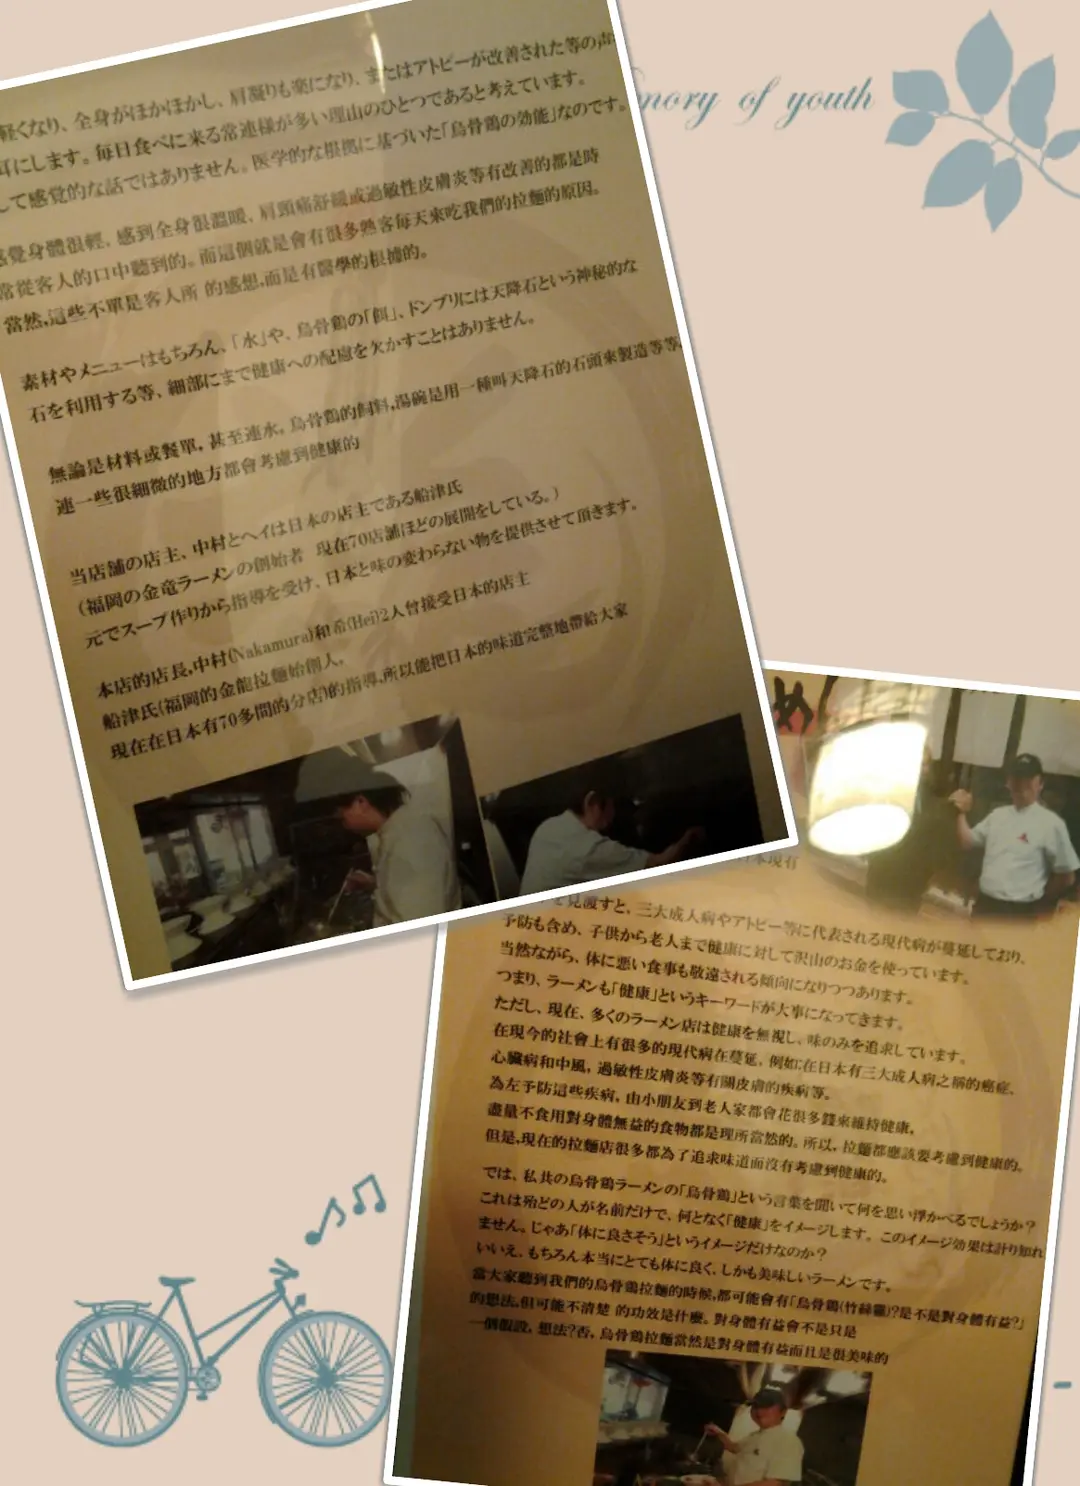 mory of youth
軽くなり、全身がほかほかし、肩凝りも楽になり、またはアトピーが改善された等の声
耳にします。毎日食べに来る常連様が多い理由のひとつであると考えています。
して感覚的な話ではありません。医学的な根拠に基づいた「烏骨鶏の効能」なのです。
感覺身體很輕、感到全身很溫暖、肩頭痛舒緩或過敏性皮膚炎等有改善的都是時
常從客人的口中聽到的。而這個就是會有很多熟客每天來吃我們的拉麵的原因。
當然,這些不單是客人所 的感想,而是有醫學的根據的。
素材やメニューはもちろん、「水」や、烏骨鶏の「餌」、ドンブリには天降石という神秘的な
石を利用する等、細部にまで健康への配慮を欠かすことはありません。
無論是材料或餐單，甚至連水，烏骨鶏的飼料,湯碗是用一種叫天降石的石頭來製造等等,
連一些很細微的地方都會考慮到健康的
当店舗の店主、中村とヘイは日本の店主である船津氏
(福岡の金竜ラーメンの創始者 現在70店舗ほどの展開をしている。)
元でスープ作りから指導を受け、日本と味の変わらない物を提供させて頂きます。
本店的店長,中村(Nakamura)和希(Hei)2人曾接受日本的店主
船津氏(福岡的金龍拉麵始創人，
現在在日本有70多間的分店)的指導,所以能把日本的味道完整地帶給大家
め
日本現有
を見渡すと、三大成人病やアトピー等に代表される現代病が蔓延しており、
予防も含め、子供から老人まで健康に対して沢山のお金を使っています。
当然ながら、体に悪い食事も敬遠される傾向になりつつあります。
つまり、ラーメンも「健康」というキーワードが大事になってきます。
ただし、現在、多くのラーメン店は健康を無視し、味のみを追求しています。
在現今的社會上有很多的現代病在蔓延，例如:在日本有三大成人病之稱的癌症、
心臟病和中風，過敏性皮膚炎等有關皮膚的疾病等。
為左予防這些疾病，由小朋友到老人家都會花很多錢來維持健康，
盡量不食用對身體無益的食物都是理所當然的。所以，拉麵都應該要考慮到健康的。
但是,現在的拉麵店很多都為了追求味道而沒有考慮到健康的。
では、私共の烏骨鶏ラーメンの「烏骨鶏」という言葉を聞いて何を思い浮かべるでしょうか？
これは殆どの人が名前だけで、何となく「健康」をイメージします。このイメージ効果は計り知れ
ません。じゃあ「体に良さそう」というイメージだけなのか？
いいえ、もちろん本当にとても体に良く、しかも美味しいラーメンです。
當大家聽到我們的烏骨鶏拉麵的時候,都可能會有「烏骨鶏(竹絲雞)?是不是對身體有益?」
的想法,但可能不清楚 的功效是什麼。對身體有益會不是只是
一個假設，想法?否，烏骨鶏拉麵當然是對身體有益而且是很美味的